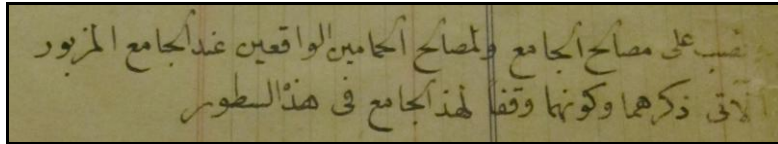 نصب على مصالح الجامع ولمصالح الحمامين الواقعين عند الجامع المزبور
الآتى ذكرهما وكونهما وقفا لهذا الجامع فى هذه السطور